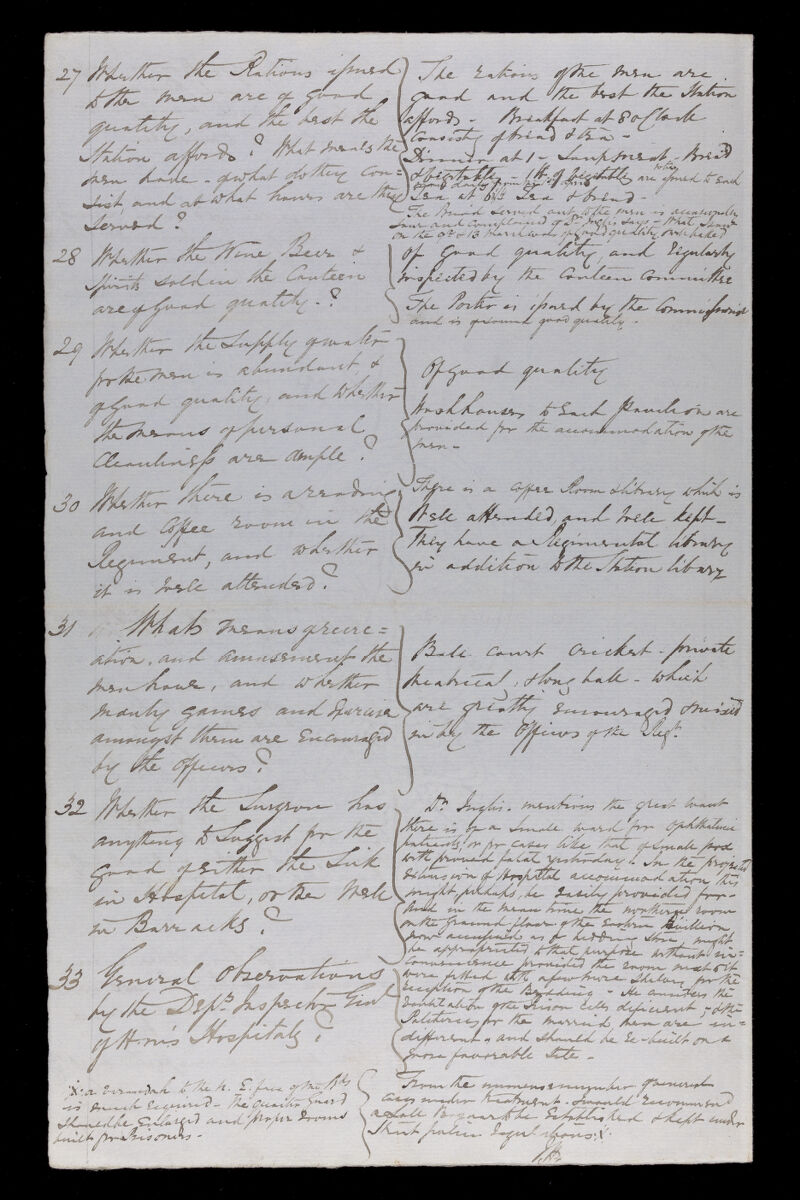 27 Whether the Rations issued
to the men are of good
quality, and the best the
Station affords? What meals the
men have - of what do they con=
sist, and at what hours are they
served?
The rations of the men are
good and the best the Station
affords - Breakfast at 8 o'Clock
consisting of bread & tea -
Dinner at 1 - Soup, meat - Bread
& vegetable - 1 lb. of vegetable are issued to each
Tea at Tea & bread -
The Bread served out to the men is occasionally
sour and complained of Dr. Inglis says - What I saw
on the of good quality
28 Whether the Wine, Beer &
Spirits sold in the Canteen
are of Good quality - ?
Of Good quality, and regularly
inspected by the Canteen Committee
The Porter is issued by the Commissariat
and is of good quality.
29 Whether the supply of water
for the men is abundant, &
of Good quality, and whether
the means of personal
Cleanliness are ample?
Of Good quality
Washhouses to each Pavilion are
provided for the accommodation of the
men -
30 Whether there is a reading
and Coffee room in the
Regiment, and whether
it is well attended?
There is a Coffee Room & library which is
well attended and well kept -
They have a Regimental library
in addition to the Station library
31 What means of recre=
ation, and amusement the
men have, and whether
manly games and Exercise
amongst them are encouraged
by the Officers?
Ball court Cricket - private
theatrical, & long balls - which
are greatly encouraged & mixed
in by the Officers of the Regt.
32 Whether the Surgeon has
anything to Suggest for the
good of either the Sick
in Hospital, or the Well
in Barracks?
Dr. Inglis - mentions the great want
there is of a small ward for Ophthalmic
patients, or for cases like that of small pox
wh. proved fatal yesterday. In the projected
extension of Hospital accommodation this
might perhaps be easily provided for -
And in the mean time the northern room
on the ground floor of the Eastern Pavilion
now occupied as a bedding Store, might
be appropriated to that purpose without in=
convenience provided the room next to it
were fitted with a few more shelves for the
reception of the Bedding - He considers the
ventilation of the Prison Cells deficient, & the
for the married men are in=
different, and should be re-built on a
more favorable site -
33 General Observations
by the Depy. Inspector Genl.
of H.M's Hospitals?
From the numerous number of venereal
cases under treatment - I would recommend
a Lock to be Established & kept under
Strict police regulations. x
x: a verandah to the N. E. face of the Bks
is much required - The Quarter Guard
should be enlarged and proper rooms
built for Prisoners -